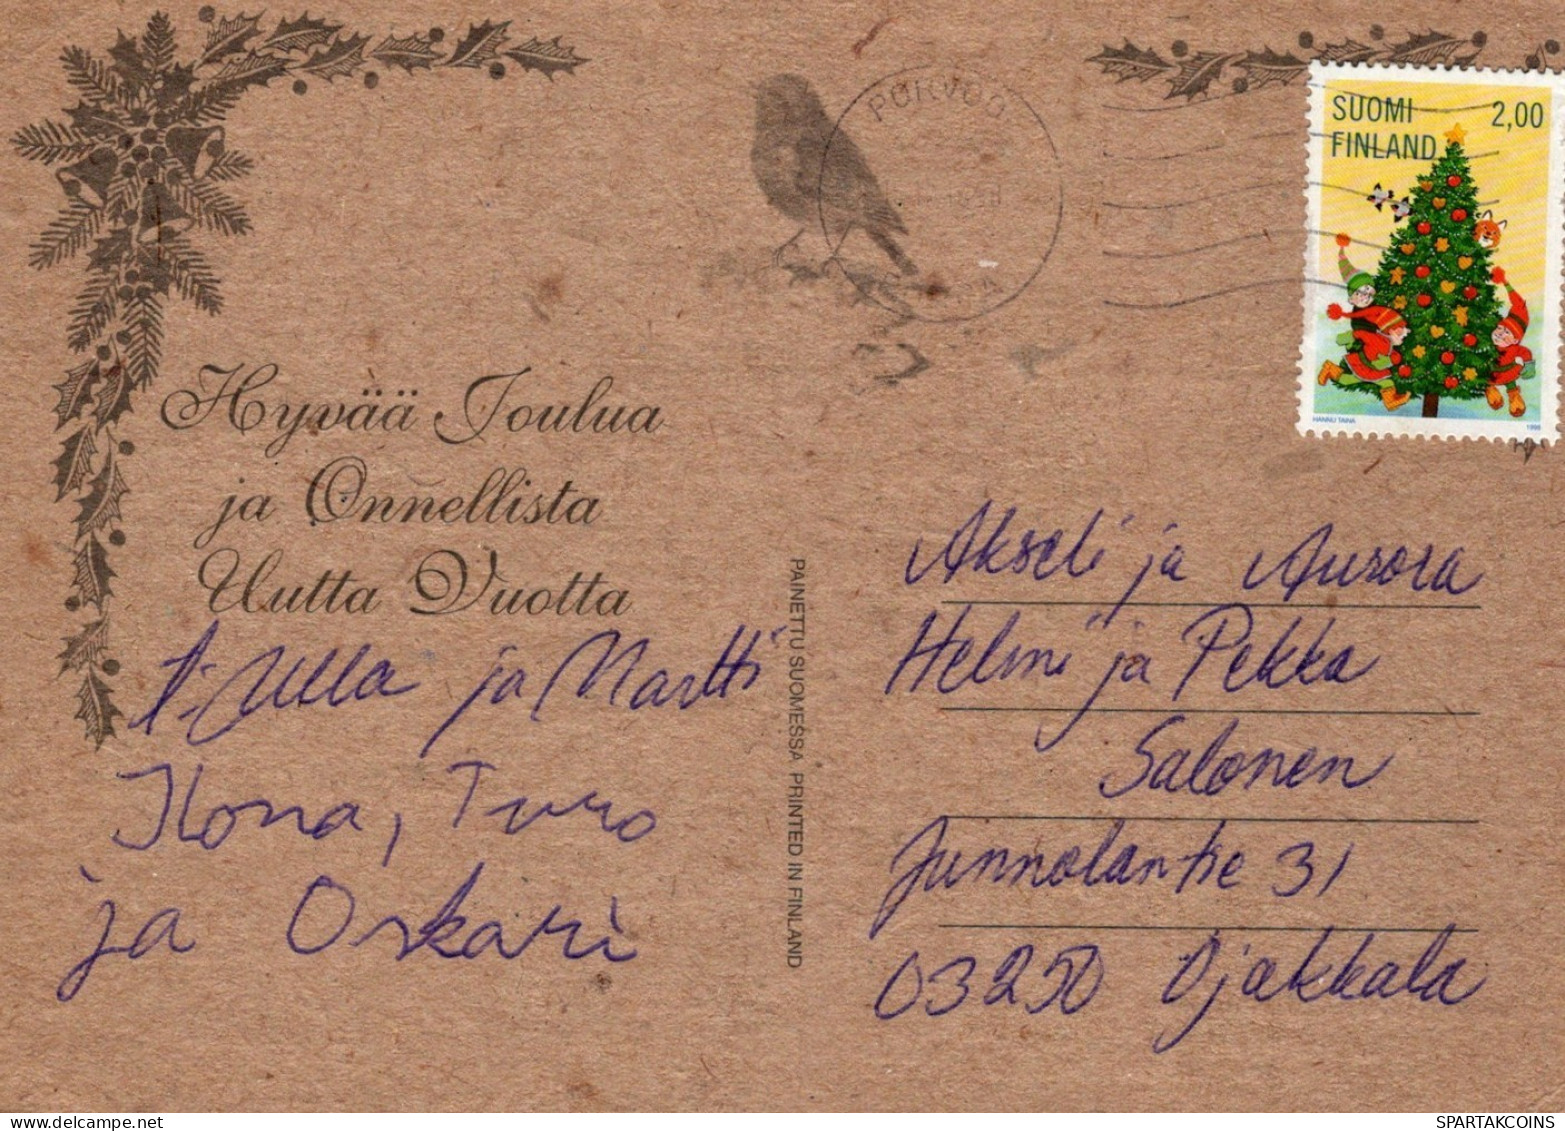 PORVOO
SUOMI 2,00
FINLAND
HANNU TAINA 1998
Hyvää Joulua
ja Onnellista
Uutta Vuotta
t: Ulla ja Martti
Ilona, Turo
ja Oskari
PAINETTU SUOMESSA PRINTED IN FINLAND
Akseli ja Aurora
Helmi ja Pekka
Salonen
Junnolantie 31
03250 Ojakkala
SPARTAKCOINS
SPARTAKCOINS.COM